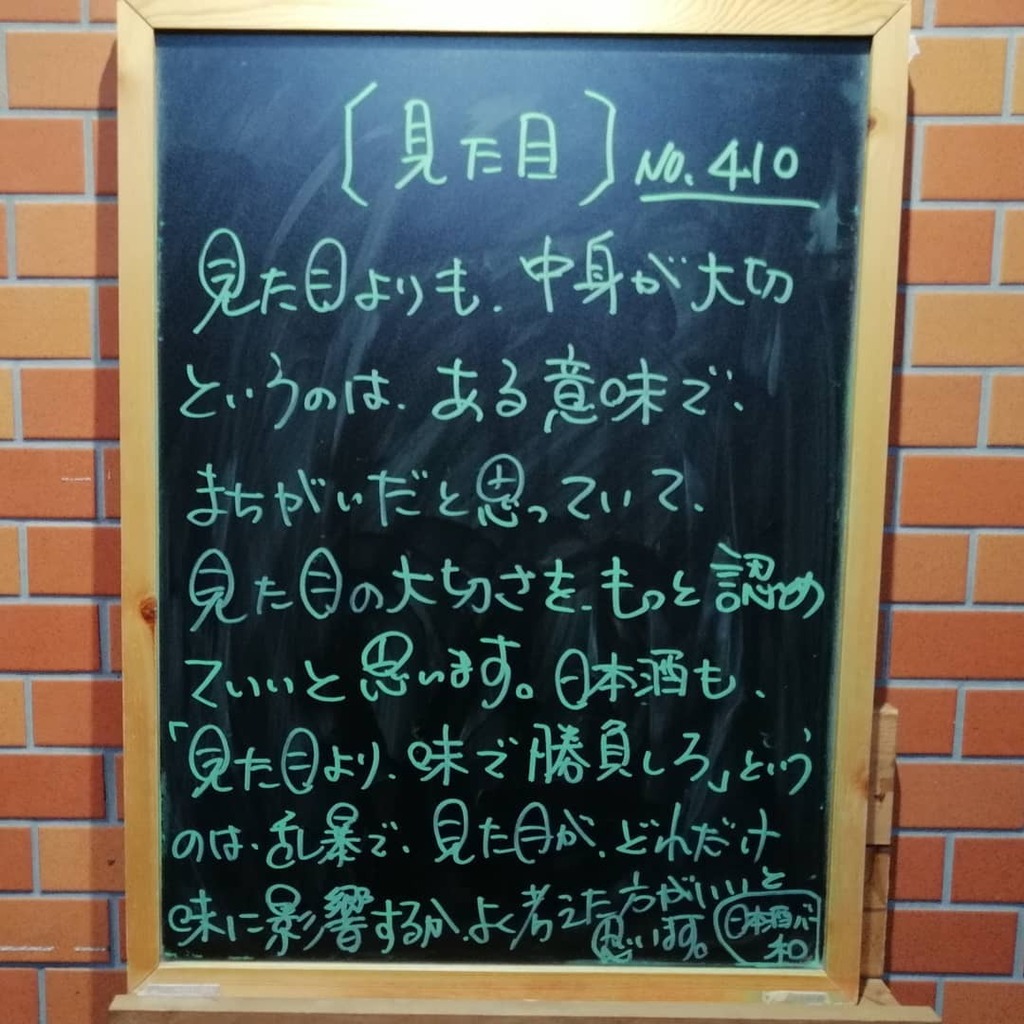 〔見た目〕 No.410
見た目よりも、中身が大切
というのは、ある意味で、
まちがいだと思っていて、
見た目の大切さを、もっと認め
ていいと思います。日本酒も、
「見た目より、味で勝負しろ」という
のは、乱暴で、見た目が、どれだけ
味に影響するか、よく考えた方がいいと
思います。
日本酒バー
和